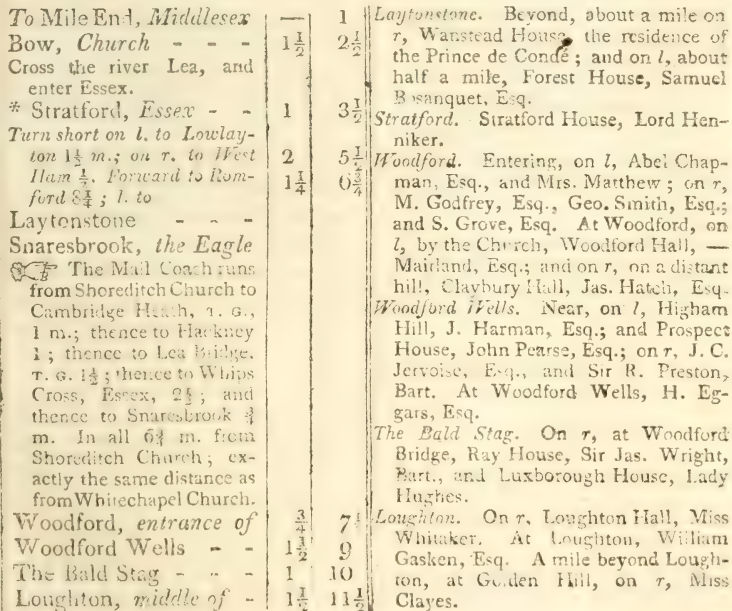 To Mile End, Middlesex — 1
Bow, Church - - - 1½ 2½
Cross the river Lea, and
enter Essex.
* Stratford, Essex - - 1 3½
Turn short on l. to Lowlay-
ton 1½ m.; on r. to West
Ham ½. Forward to Rom-
ford 8¾; l. to
Laytonstone - - - 2 5½
Snaresbrook, the Eagle 1¼ 6¾
☞ The Mail Coach runs
from Shoreditch Church to
Cambridge Heath, T. G.,
1 m.; thence to Hackney
1; thence to Lea Bridge,
T. G. 1½; thence to Whips
Cross, Essex, 2½; and
thence to Snaresbrook ¾
m. In all 6¾ m. from
Shoreditch Church; ex-
actly the same distance as
from Whitechapel Church.
Woodford, entrance of ¾ 7½
Woodford Wells - - 1½ 9
The Bald Stag - - - 1 10
Loughton, middle of - 1½ 11½
Laytonstone. Beyond, about a mile on
r, Wanstead House, the residence of
the Prince de Condé; and on l, about
half a mile, Forest House, Samuel
Bosanquet, Esq.
Stratford. Stratford House, Lord Hen-
niker.
Woodford. Entering, on l, Abel Chap-
man, Esq., and Mrs. Matthew; on r,
M. Godfrey, Esq., Geo. Smith, Esq.;
and S. Grove, Esq. At Woodford, on
l, by the Church, Woodford Hall, —
Maitland, Esq.; and on r, on a distant
hill, Claybury Hall, Jas. Hatch, Esq.
Woodford Wells. Near, on l, Higham
Hill, J. Harman, Esq.; and Prospect
House, John Pearse, Esq.; on r, J. C.
Jervoise, Esq., and Sir R. Preston,
Bart. At Woodford Wells, H. Eg-
gars, Esq.
The Bald Stag. On r, at Woodford
Bridge, Ray House, Sir Jas. Wright,
Bart., and Luxborough House, Lady
Hughes.
Loughton. On r, Loughton Hall, Miss
Whitaker. At Loughton, William
Gasken, Esq. A mile beyond Lough-
ton, at Golden Hill, on r, Miss
Clayes.